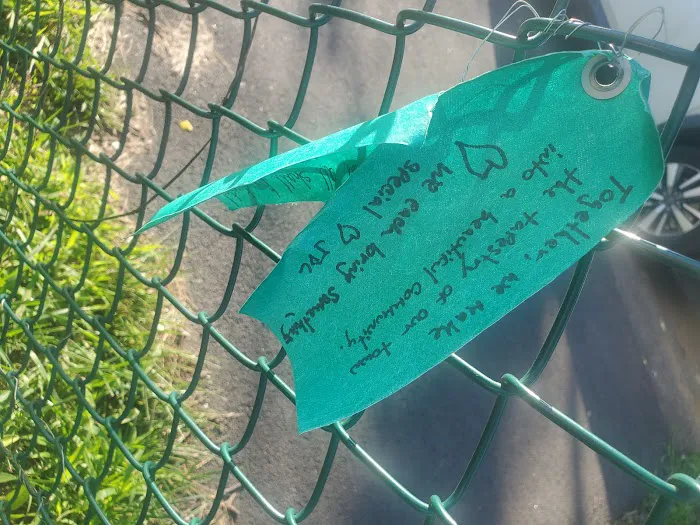 Together, we make
the tapestry of our town
into a beautiful community.
♡ We each bring something
special ♡ JDC